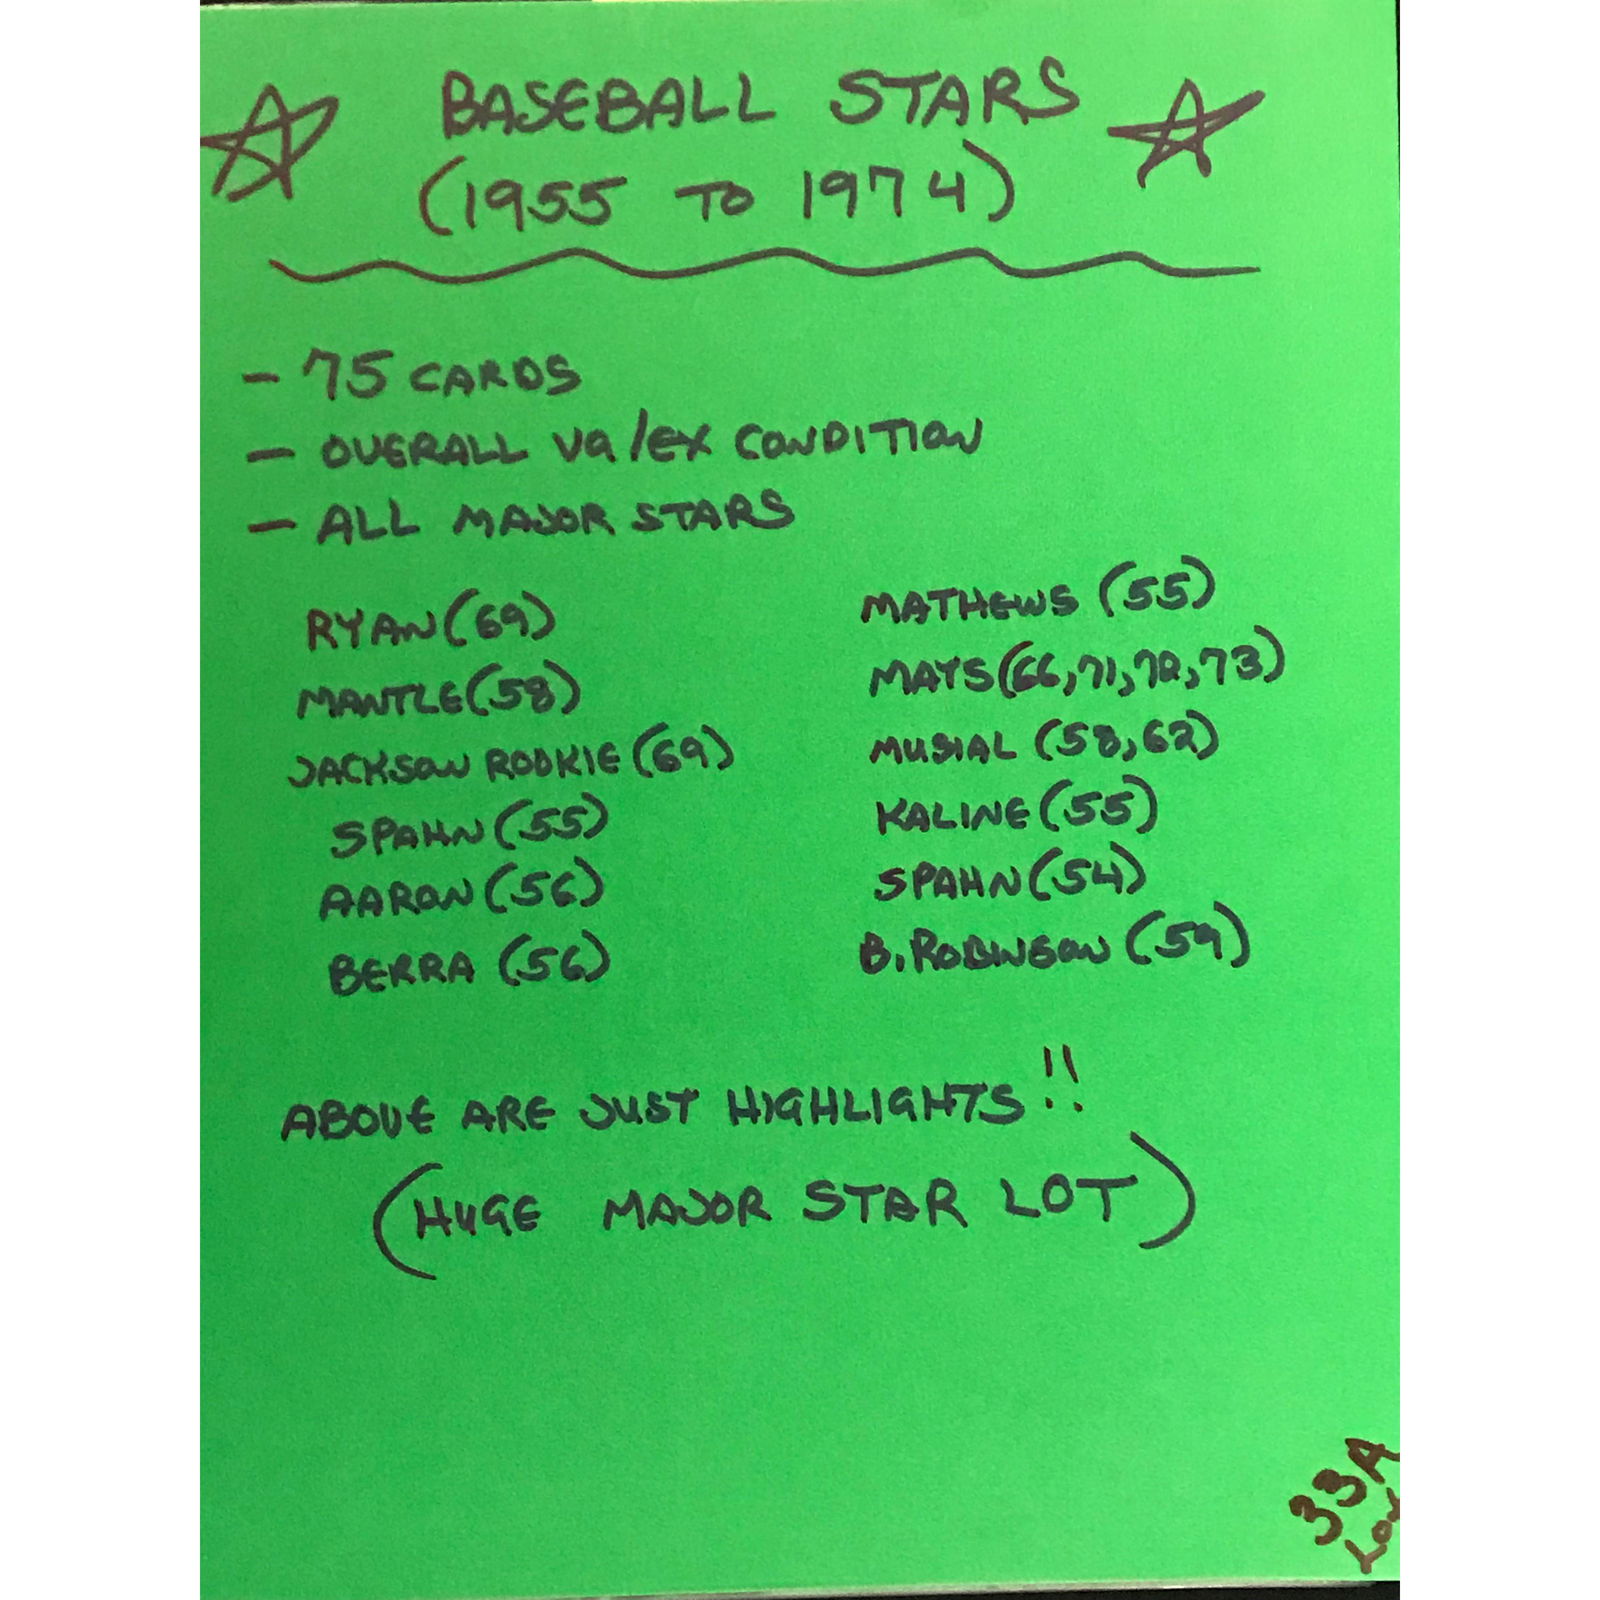 BASEBALL STARS
(1955 TO 1974)
- 75 CARDS
- OVERALL VG/EX CONDITION
- ALL MAJOR STARS
RYAN (69)
MANTLE (58)
JACKSON ROOKIE (69)
SPAHN (55)
AARON (56)
BERRA (56)
MATHEWS (55)
MAYS (66,71,72,73)
MUSIAL (58,62)
KALINE (55)
SPAHN (54)
B. ROBINSON (59)
ABOVE ARE JUST HIGHLIGHTS!!
(HUGE MAJOR STAR LOT)
33A
LOT